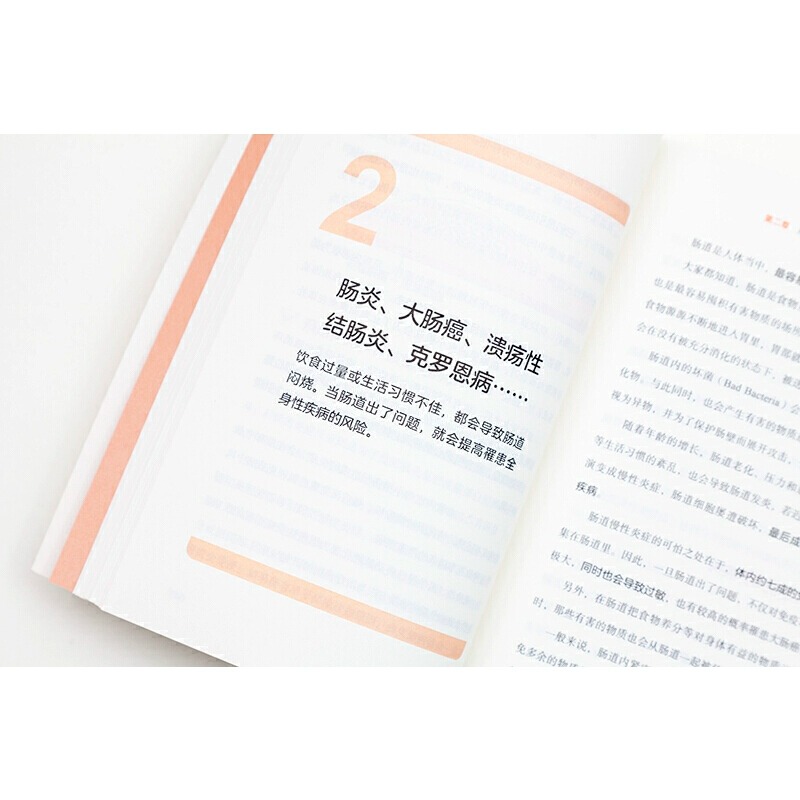 2
肠炎、大肠癌、溃疡性
结肠炎、克罗恩病……
饮食过量或生活习惯不佳，都会导致肠道
闷烧。当肠道出了问题，就会提高罹患全
身性疾病的风险。
第二章
肠道是人体当中，最容易
大家都知道，肠道是食物
也是最容易囤积有害物质的场所
食物源源不断地进入胃里，胃部就
会在没有被充分消化的状态下，被送
肠道内的坏菌（Bad Bacteria）会
化物。与此同时，也会产生有害的物质
视为异物，并为了保护肠壁而展开攻击，
随着年龄的增长，肠道老化、压力和
等生活习惯的紊乱，也会导致肠道发炎，若
演变成慢性炎症，肠道细胞屡遭破坏，最后
疾病。
肠道慢性炎症的可怕之处在于，体内约七成的
集在肠道里。因此，一旦肠道出了问题，不仅对免疫
极大，同时也会导致过敏，也有较高的概率罹患大肠癌
另外，在肠道把食物养分等对身体有益的物质
时，那些有害的物质也会从肠道一起被
一般来说，肠道内
免多余的物质